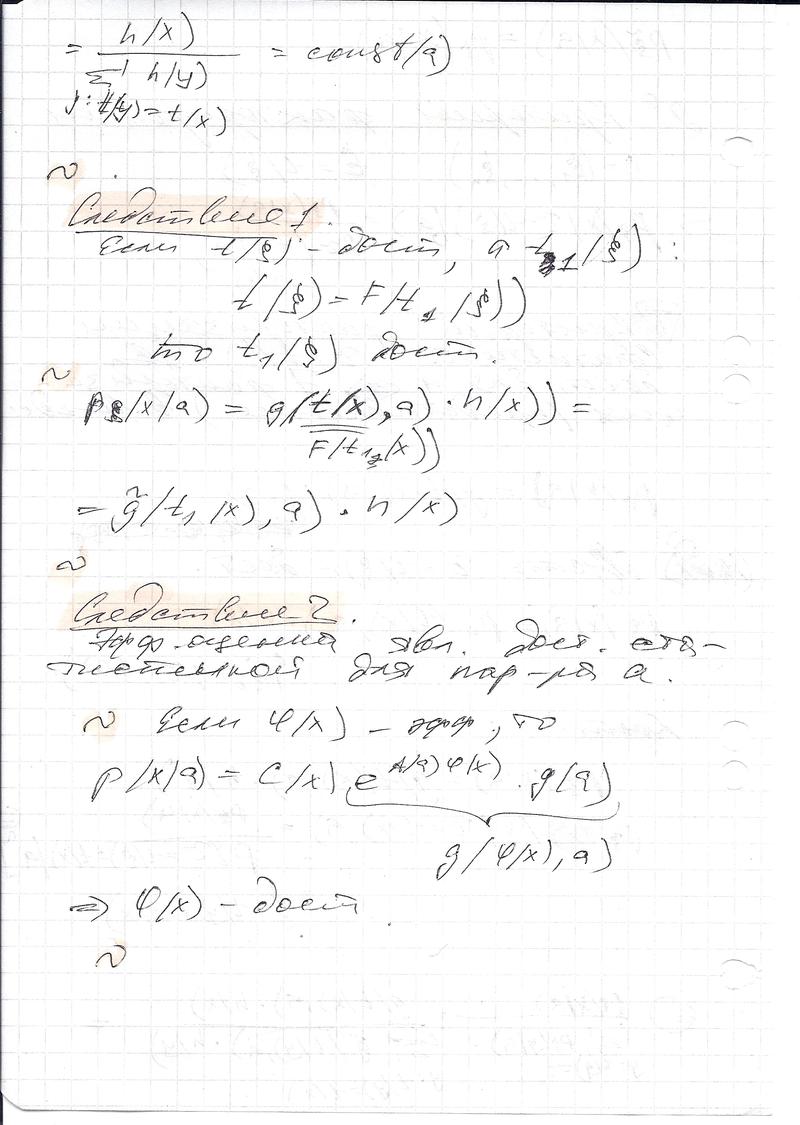 = h(x) / Σ h(y) = const(a)
y: t(y) = t(x)
~
Следствие 1.
Если t(ξ) - дост, а t₁(ξ):
t(ξ) = F(t₁(ξ))
то t₁(ξ) дост.
~
pξ(x|a) = g(t(x), a) · h(x)) =
F(t₁(x))
= g̃(t₁(x), a) · h(x)
~
Следствие 2.
Эфф. оценка явл. дост. ста-
тистикой для пар-ра a.
~ Если φ(x) - эфф, то
p(x|a) = C(x) e^{A(a)φ(x)} · g(a)
g(φ(x), a)
⇒ φ(x) - дост
~